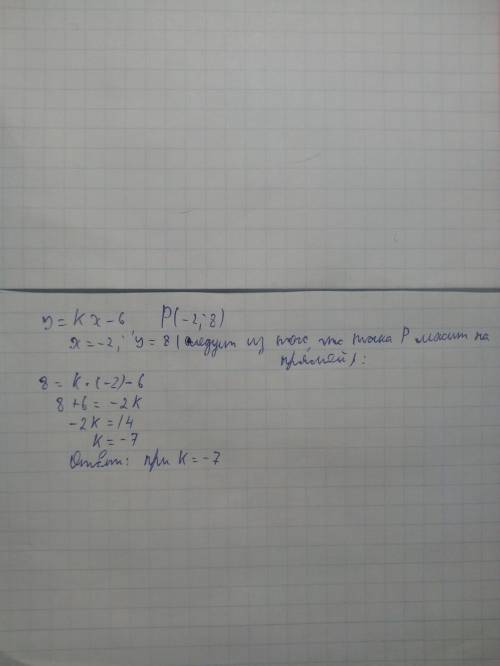 y = kx - 6 P(-2; 8)
x = -2; y = 8 (следует из того, что точка P лежит на
прямой):
8 = k · (-2) - 6
8 + 6 = -2k
-2k = 14
k = -7
Ответ: при k = -7